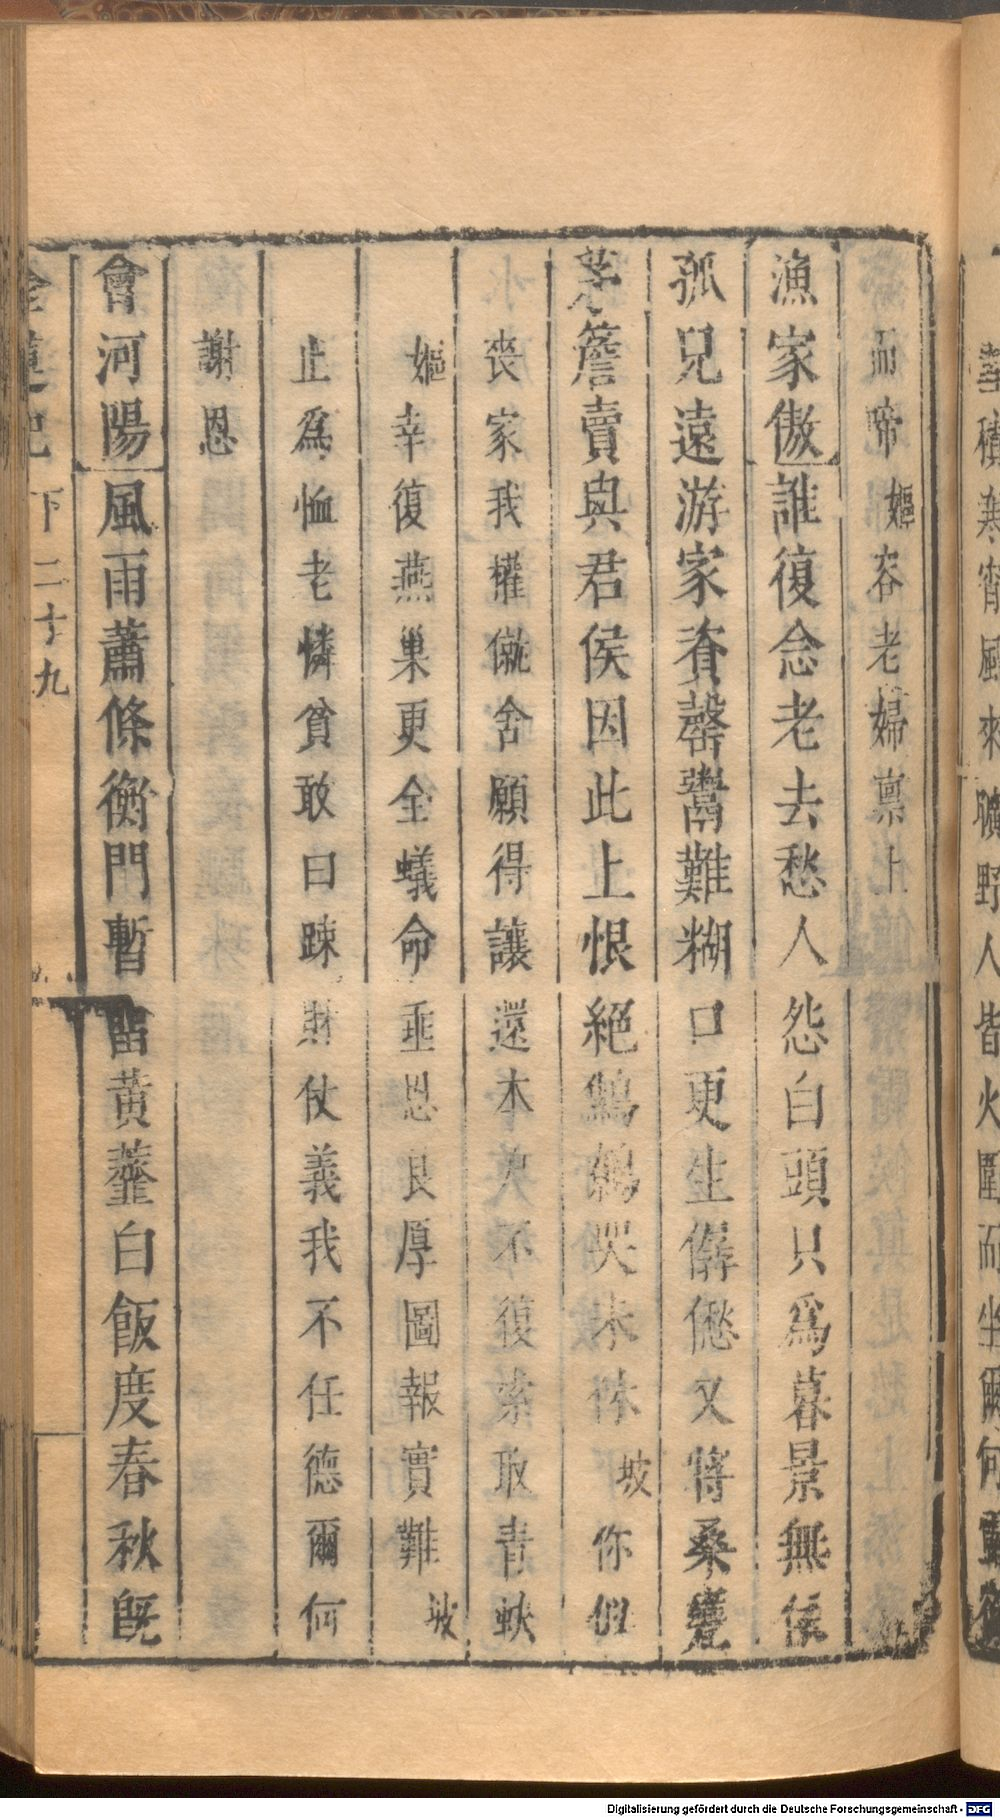 而啼嫗容老婦禀上
漁家傲誰復念老去愁人怨白頭只爲暮景無依
孤兒遠游家資罄鬻難糊口更生僝僽又將桑甕
茅簷賣與君侯因此上恨絕鷦鷯哭未休坡你但
喪家我權僦舍願得讓還本炎不復索取青蚨
嫗幸復燕巢更全蟻命垂恩良厚圖報實難坡
止爲恤老憐貧敢曰踈財仗義我不任德爾何
謝恩
會河陽風雨蕭條衡門暫畱黃虀白飯度春秋旣
金蓮記 下 二十九
積寒宵風來曠野人皆火圍而坐爾何重
Digitalisierung gefördert durch die Deutsche Forschungsgemeinschaft - DFG